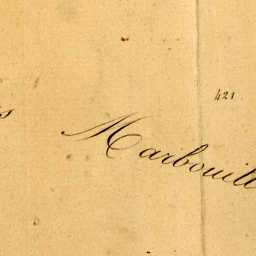 421
Marbouill